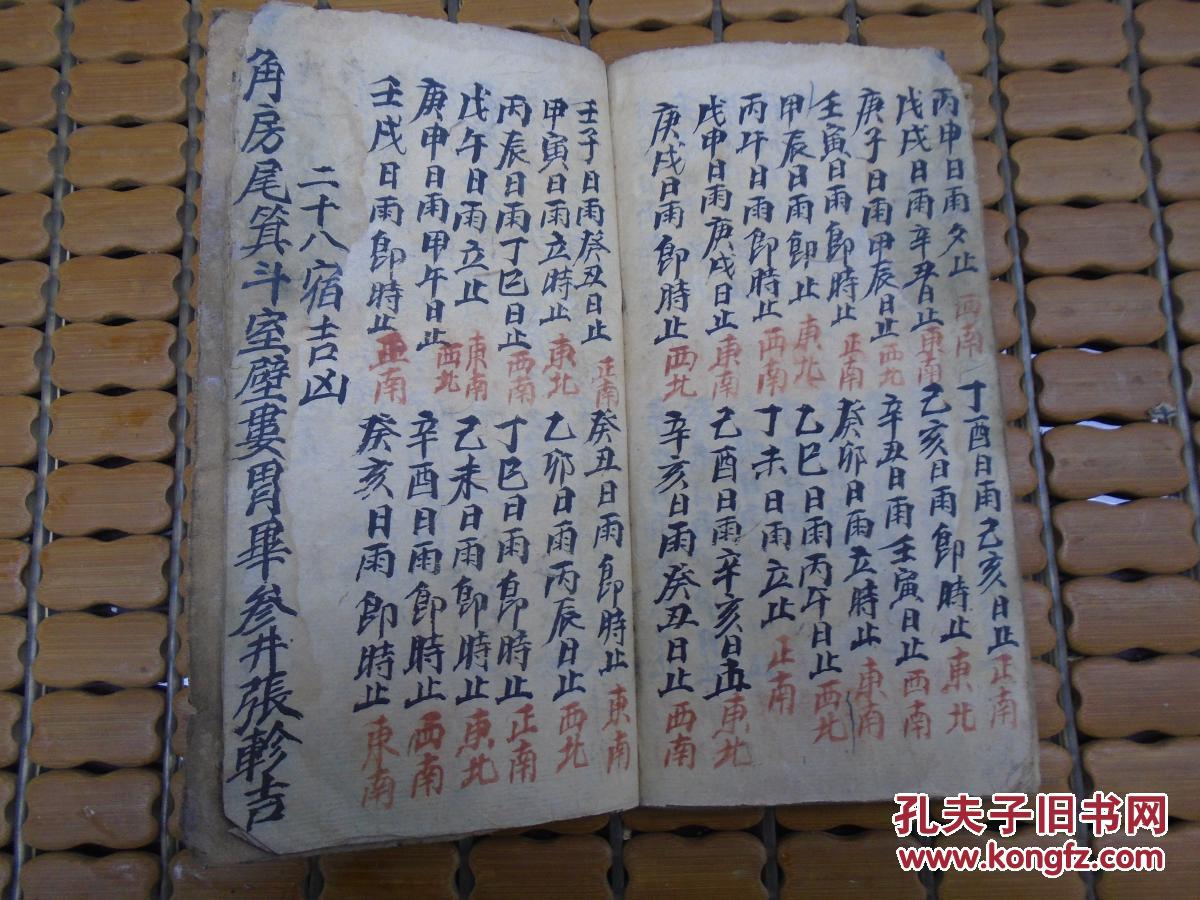 丙申日雨夕止 西南 丁酉日雨己亥日止 正南
戊戌日雨辛丑日止 東南 己亥日雨即時止 東北
庚子日雨甲辰日止 西北 辛丑日雨壬寅日止 西南
壬寅日雨即時止 正南 癸卯日雨立時止 東南
甲辰日雨即止 東北 乙巳日雨丙午日止 西北
丙午日雨即時止 西南 丁未日雨立止 正南
戊申日雨庚戌日止 東南 己酉日雨辛亥日止 東北
庚戌日雨即時止 西北 辛亥日雨癸丑日止 西南
壬子日雨癸丑日止 正南 癸丑日雨即時止 東南
甲寅日雨立時止 東北 乙卯日雨丙辰日止 西北
丙辰日雨丁巳日止 西南 丁巳日雨即時止 正南
戊午日雨立止 東南 己未日雨即時止 東北
庚申日雨甲午日止 西北 辛酉日雨即時止 西南
壬戌日雨即時止 正南 癸亥日雨即時止 東南
二十八宿吉凶
角房尾箕斗室壁婁胃畢參井張軫吉
孔夫子旧书网
www.kongfz.com